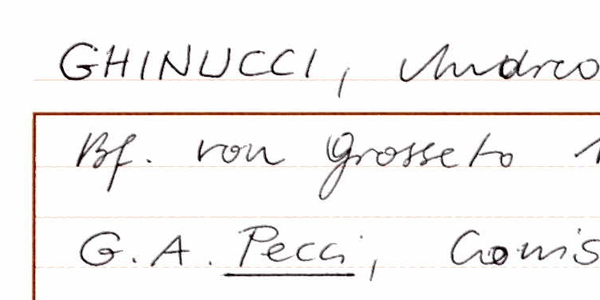 GHINUCCI, Andreo
Bf. von Grosseto
G.A. Pecci,